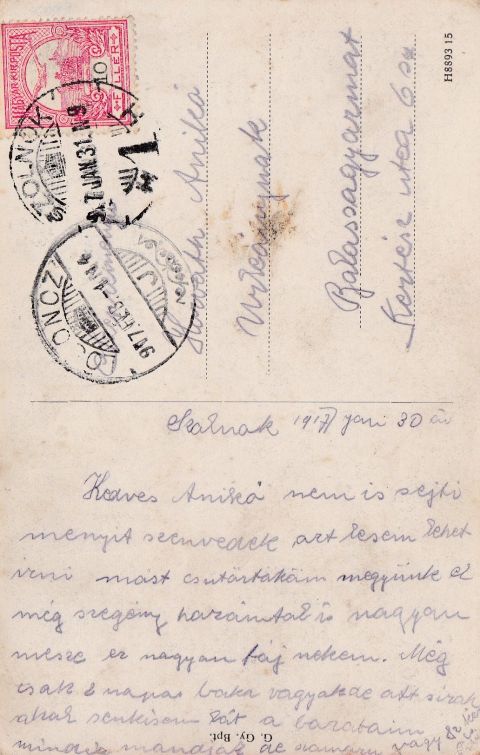 MAGYAR KIR. POSTA
10
FILLÉR
SZOLNOK
917 JAN 31. N 9
T
1
LOSONCZ
917 FEB
H8893 15
Horváth Anikó
Urleánynak
Balassagyarmat
Kertész utca 6 sz
Szolnok 1917 jan 30 án
Kedves Anikó nem is sejti
menyit szenvedek azt lesem lehet
irni most csütörtökön megyünk el
még szegény hazámtól is nagyon
messze ez nagyon fáj nekem. Még
csak 2 napos baka vagyok de
akar senkisem lát a barátaim
mindig mondják de
G. Gy. Bpt.